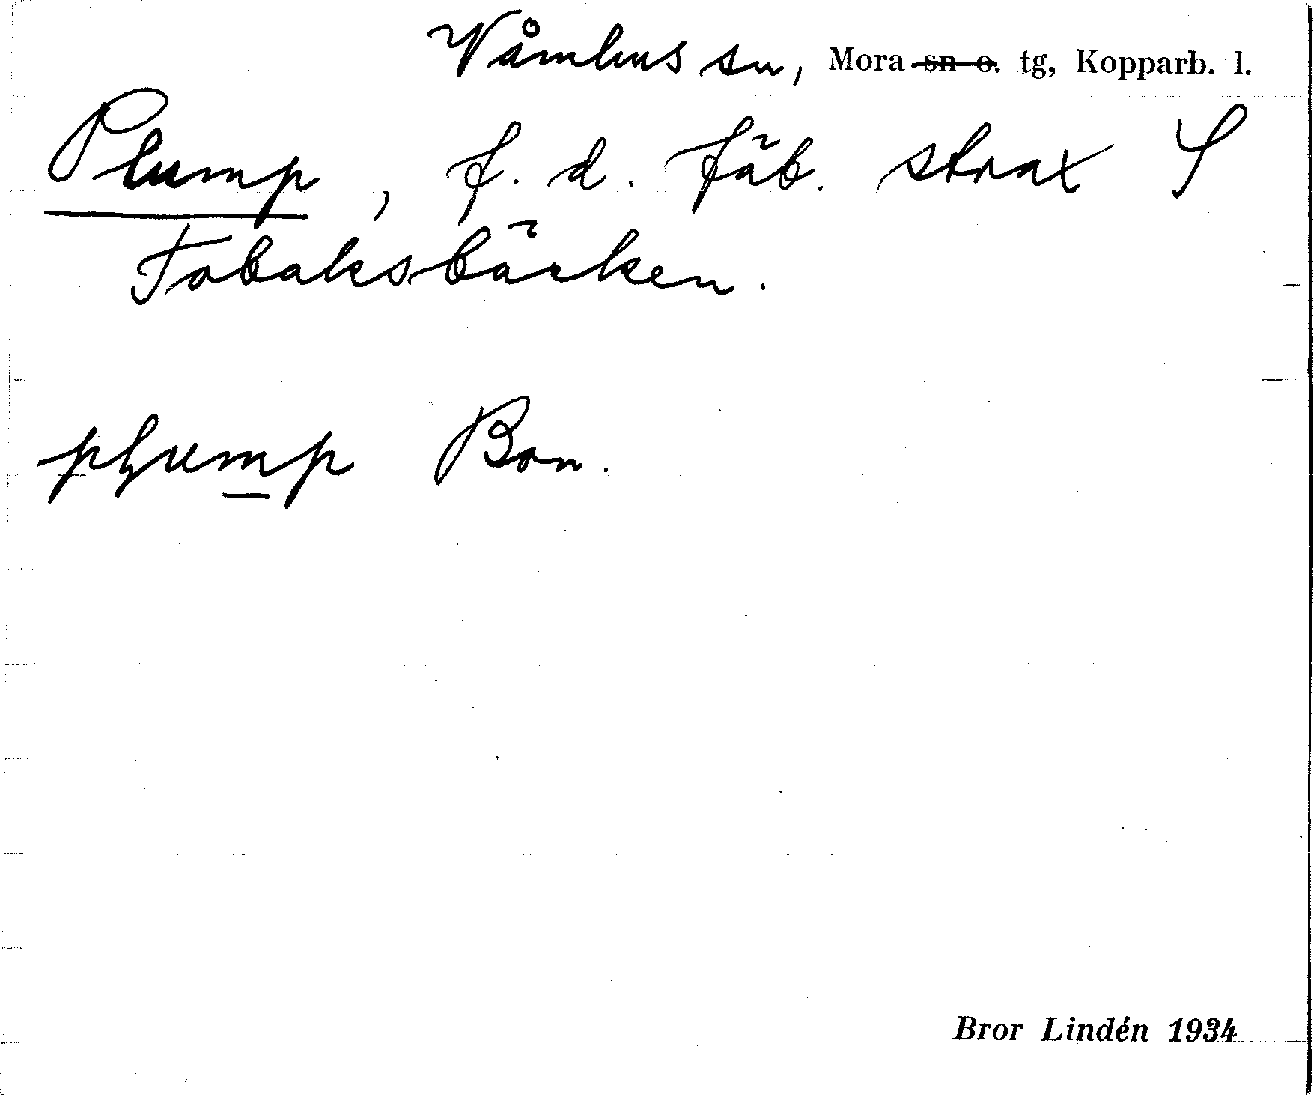 Våmhus sn, Mora sn o. tg, Kopparb. l.
Plump, f. d. fäb. strax S
Tobaksbäcken.
pɫump Bon.
Bror Lindén 1934